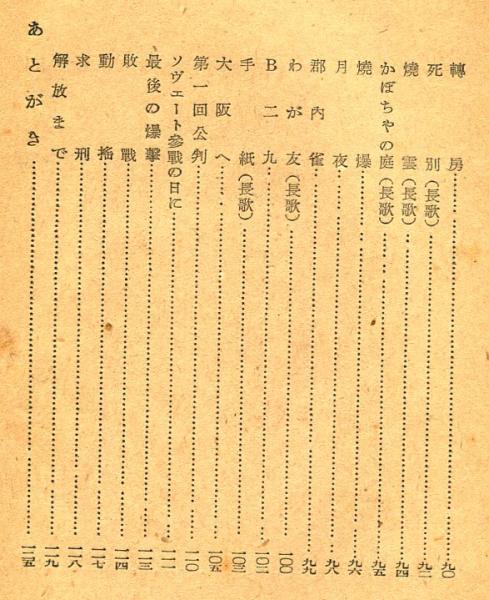 轉房……九〇
死別(長歌)……九二
燒雲(長歌)……九四
かぼちやの庭(長歌)……九五
燒爆……九六
月夜……九八
郡内雀……九九
わが友(長歌)……一〇〇
B二九……一〇二
手紙(長歌)……一〇三
大阪へ……一〇五
第一回公判……一一〇
ソヴエート參戰の日に……一一一
最後の爆擊……一一三
敗戰……一一四
動搖……一一七
求刑……一一八
解放まで……一一九
あとがき……一二五